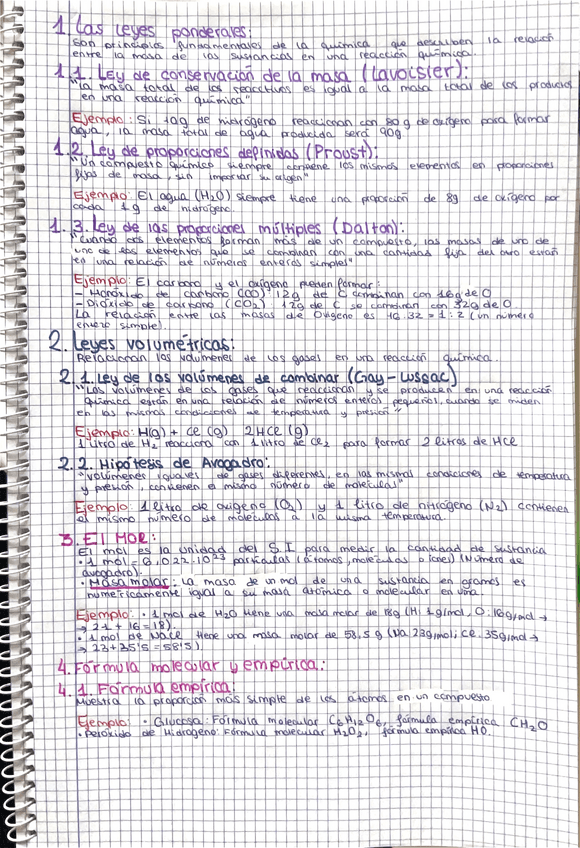 1. Las leyes ponderales:
Son principios fundamentales de la química que describen la relación
entre la masa de las sustancias en una reacción química.
1.1. Ley de conservación de la masa (Lavoisier):
"La masa total de los reactivos es igual a la masa total de los productos
en una reacción química"
Ejemplo: Si 10g de hidrógeno reaccionan con 80g de oxígeno para formar
agua, la masa total de agua producida será 90g
1.2. Ley de proporciones definidas (Proust):
"Un compuesto químico siempre contiene los mismos elementos en proporciones
fijas de masa, sin importar su origen"
Ejemplo: El agua (H₂O) siempre tiene una proporción de 8g de oxígeno por
cada 1g de hidrógeno.
1.3. Ley de las proporciones múltiples (Dalton):
"Cuando dos elementos forman más de un compuesto, las masas de uno de
uno de los elementos que se combinan con una cantidad fija del otro están
en una relación de números enteros simples"
Ejemplo: El carbono y el oxígeno pueden formar:
- Monóxido de carbono (CO): 12g de C combinan con 16g de O
- Dióxido de carbono (CO₂): 12g de C se combinan con 32g de O
La relación entre las masas de Oxígeno es 16:32 = 1:2 (un número
entero simple).
2. Leyes volumétricas:
Relacionan los volúmenes de los gases en una reacción química.
2.1. Ley de los volúmenes de combinar (Gay-Lussac)
"Los volúmenes de gases que reaccionan y se producen en una reacción
química están en una relación de números enteros pequeños, cuando se miden
en las mismas condiciones de temperatura y presión"
Ejemplo: H(g) + Cl (g) 2HCl (g)
1 litro de H₂ reacciona con 1 litro de Cl₂ para formar 2 litros de HCl
2.2. Hipótesis de Avogadro:
"volúmenes iguales de gases diferentes, en las mismas condiciones de temperatura
y presión, contienen el mismo número de moléculas"
Ejemplo: 1 litro de oxígeno (O₂) y 1 litro de nitrógeno (N₂) contienen
el mismo número de moléculas a la misma temperatura.
3. El MOL:
El mol es la unidad del S.I para medir la cantidad de sustancia
· 1 mol = 6,022·10²³ partículas (átomos, moléculas o iones) (Número de
avogadro).
· Masa molar: La masa de un mol de una sustancia en gramos es
numéricamente igual a su masa atómica o molecular en uma.
Ejemplo: · 1 mol de H₂O tiene una masa molar de 18g (H: 1g/mol, O: 16g/mol →
→ 2·1 + 16 = 18).
· 1 mol de NaCl tiene una masa molar de 58,5 g (Na 23g/mol; Cl: 35g/mol →
→ 23+35'5 = 58'5)
4. Fórmula molecular y empírica:
4.1. Fórmula empírica:
Muestra la proporción más simple de los átomos en un compuesto
Ejemplo: · Glucosa: Fórmula molecular C₆H₁₂O₆, fórmula empírica CH₂O
· Peróxido de Hidrógeno: Fórmula molecular H₂O₂, fórmula empírica HO.